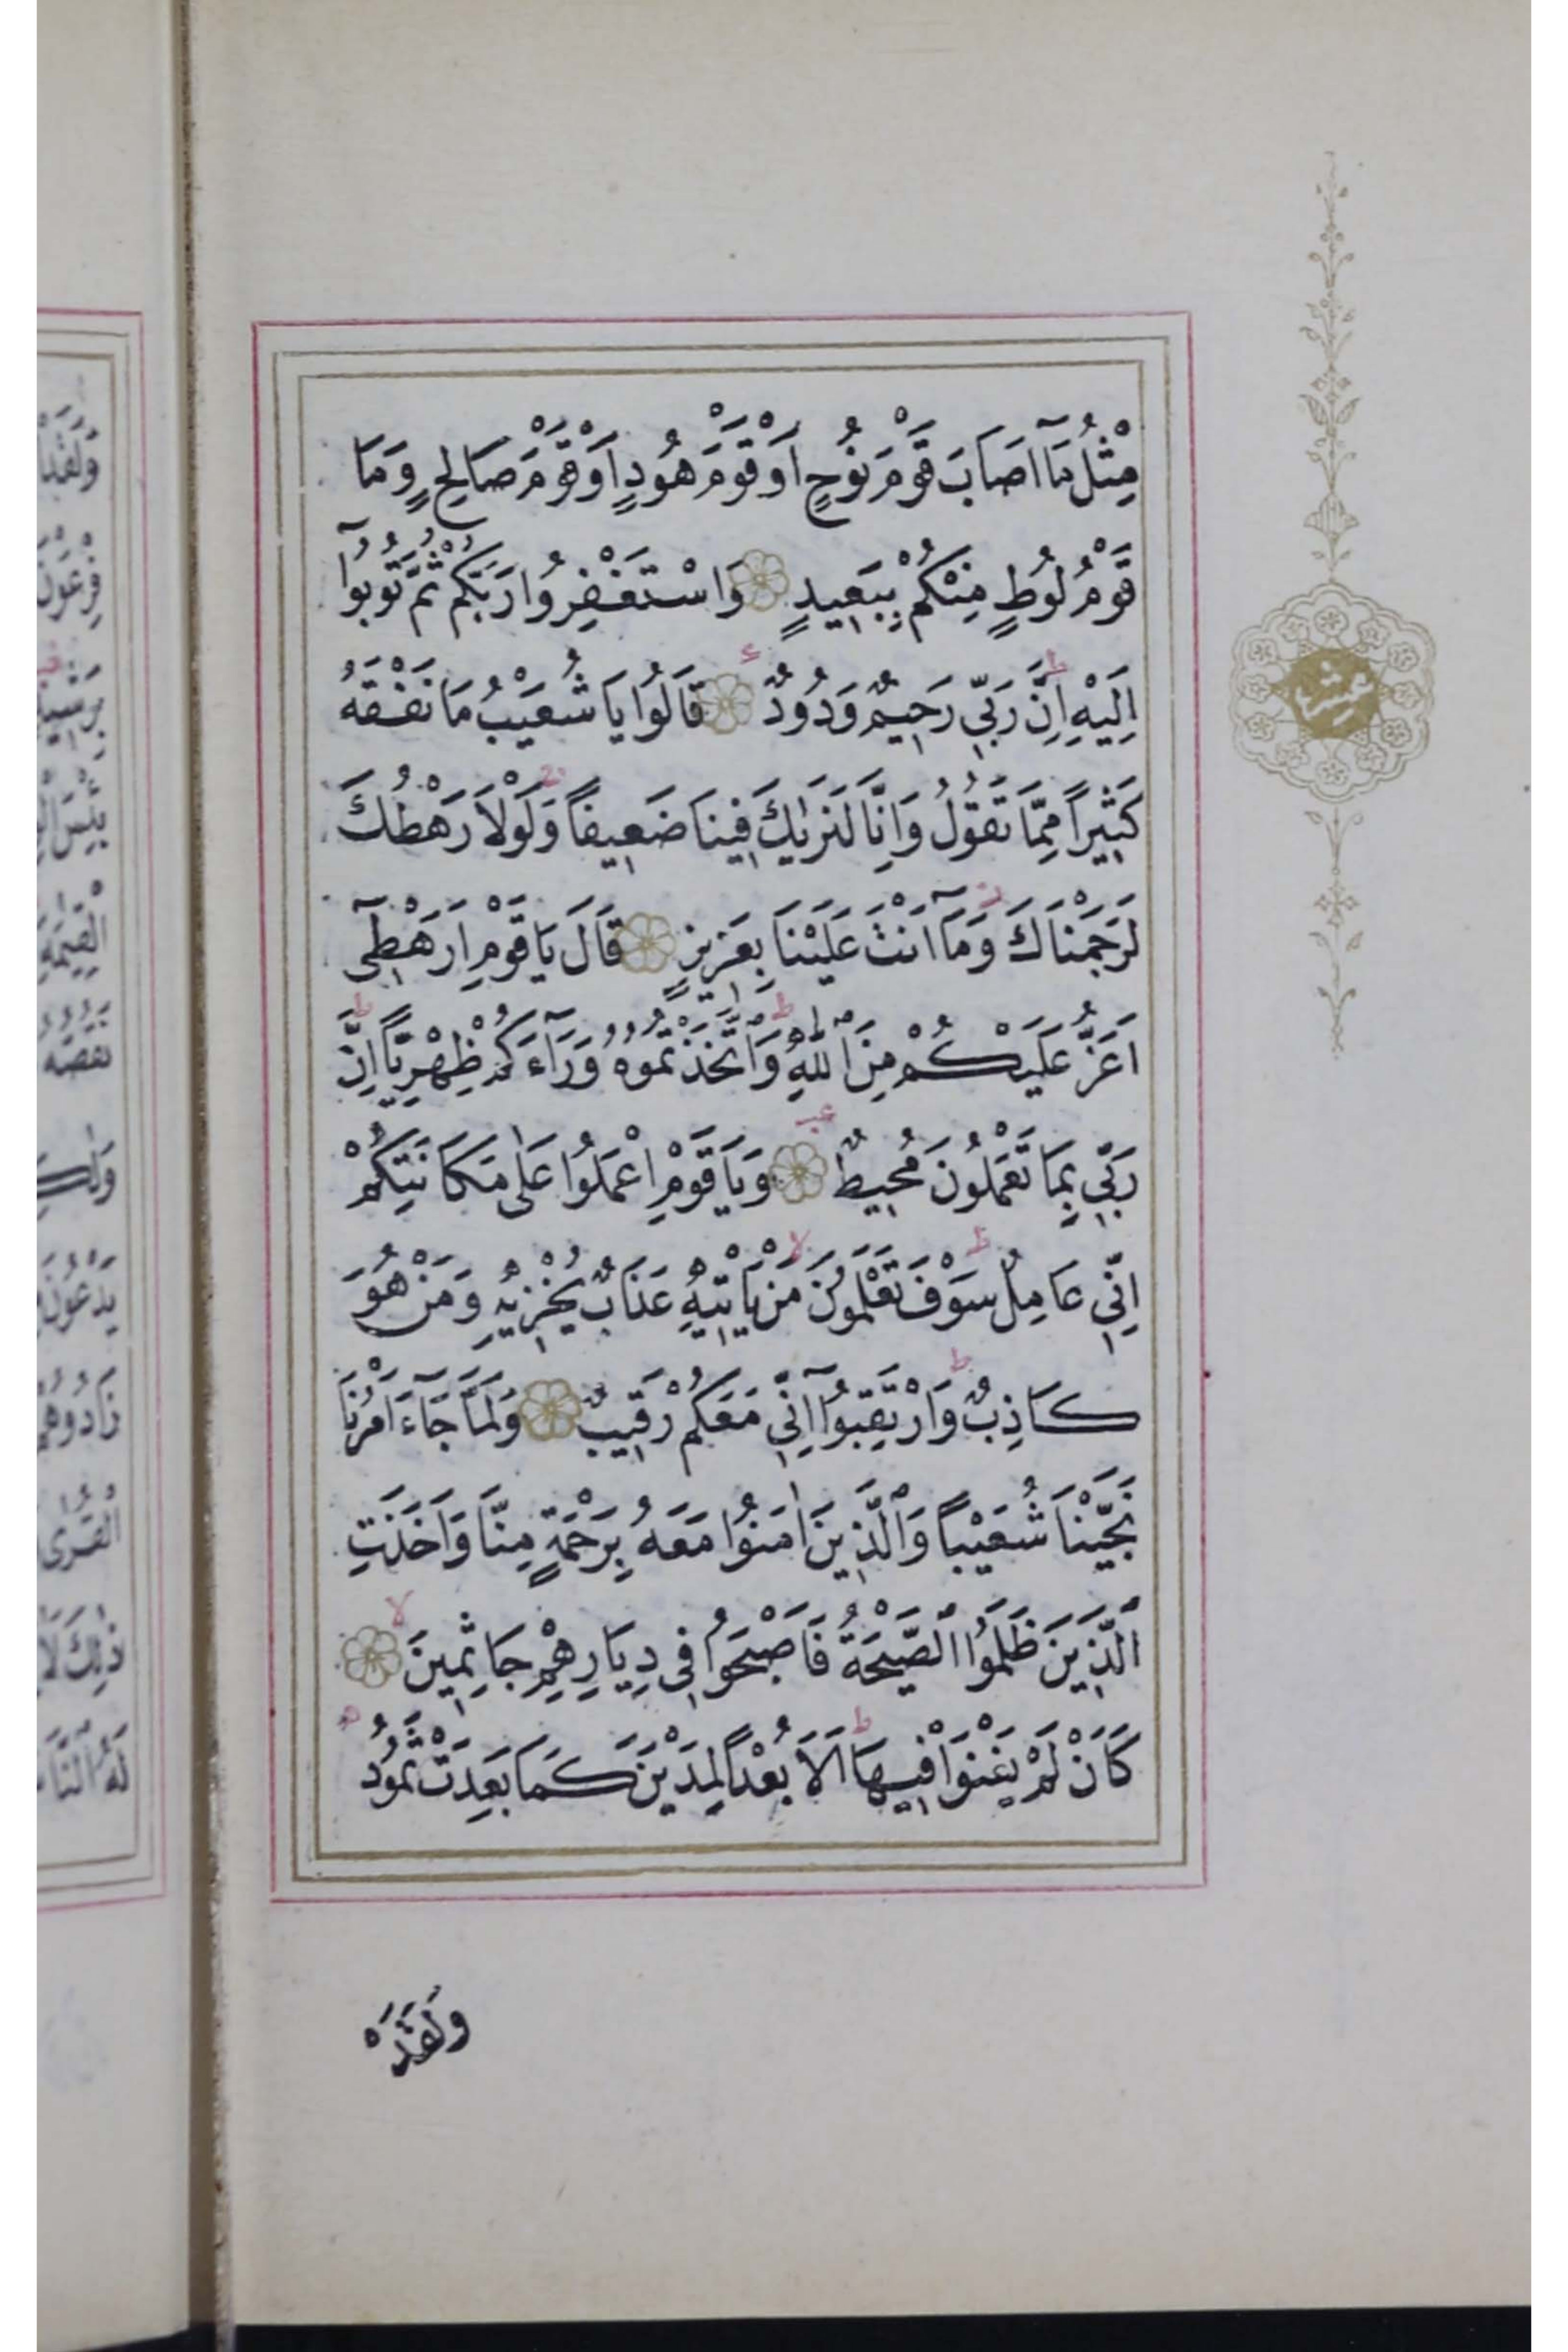 مِثْلُ مَٓا اَصَابَ قَوْمَ نُوحٍ اَوْ قَوْمَ هُودٍ اَوْ قَوْمَ صَالِحٍ وَمَا
قَوْمُ لُوطٍ مِنْكُمْ بِبَعِيدٍ وَاسْتَغْفِرُوا رَبَّكُمْ ثُمَّ تُوبُٓوا
اِلَيْهِ ط اِنَّ رَبِّي رَحِيمٌ وَدُودٌ قَالُوا يَا شُعَيْبُ مَا نَفْقَهُ
كَثِيراً مِمَّا تَقُولُ وَاِنَّا لَنَرٰيكَ فِينَا ضَعِيفاً وَلَوْلَا رَهْطُكَ
لَرَجَمْنَاكَ وَمَٓا اَنْتَ عَلَيْنَا بِعَزِيزٍ قَالَ يَا قَوْمِ اَرَهْطِٓى
اَعَزُّ عَلَيْكُمْ مِنَ اللّٰهِ ط وَاتَّخَذْتُمُوهُ وَرَٓاءَكُمْ ظِهْرِيًّا ط اِنَّ
رَبِّي بِمَا تَعْمَلُونَ مُحِيطٌ وَيَا قَوْمِ اعْمَلُوا عَلٰى مَكَانَتِكُمْ
اِنِّي عَامِلٌ ط سَوْفَ تَعْلَمُونَ لا مَنْ يَاْتِيهِ عَذَابٌ يُخْزِيهِ وَمَنْ هُوَ
كَاذِبٌ ط وَارْتَقِبُٓوا اِنِّي مَعَكُمْ رَقِيبٌ وَلَمَّا جَٓاءَ اَمْرُنَا
نَجَّيْنَا شُعَيْباً وَالَّذِينَ اٰمَنُوا مَعَهُ بِرَحْمَةٍ مِنَّا وَاَخَذَتِ
الَّذِينَ ظَلَمُوا الصَّيْحَةُ فَاَصْبَحُوا فِى دِيَارِهِمْ جَاثِمِينَ لا
كَاَنْ لَمْ يَغْنَوْا فِيهَا ط اَلَا بُعْداً لِمَدْيَنَ كَمَا بَعِدَتْ ثَمُودُ
وَلَقَدْ